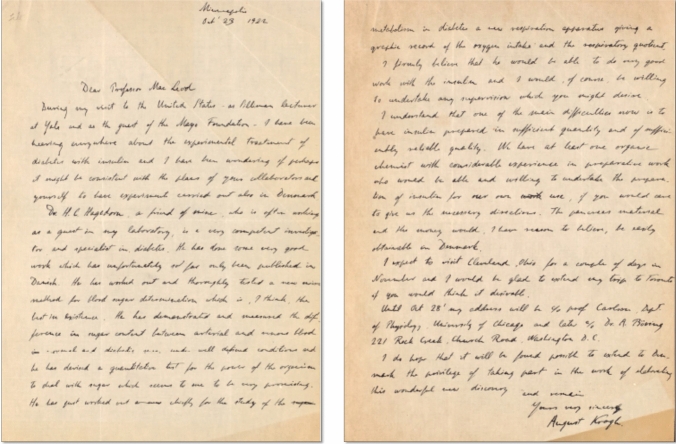 Minneapolis
Oct 23 1922
Dear Professor Mac Leod
During my visit to the United States as Silliman lecturer
at Yale and as the guest of the Mayo Foundation I have been
hearing everywhere about the experimental treatment of
diabetes with insulin and I have been wondering if perhaps
it might be consistent with the plans of your collaborators and
yourself to have experiment carried out also in Denmark
Dr. H.C. Hagedorn, a friend of mine, who is often working
as a guest in my laboratory, is a very competent investiga
tor and specialist in diabetes. He has done some very good
work which has unfortunately so far only been published in
Danish. He has worked out and thoroughly tested a new micro
method for blood sugar determination which is, I think, the
best in existence. He has demonstrated and measured the dif
ference in sugar content between arterial and venous blood
in normal and diabetic under well defined conditions and
he has devised a quantitative test for the power of the organism
to deal with sugar which seems to me to be very promising.
He has just worked out chiefly for the study of the
metabolism in diabetes a new respiration apparatus giving a
graphic record of the oxygen intake and the respiratory quotient.
I firmly believe that he would be able to do very good
work with the insulin and I would, of course, be willing
to undertake any supervision which you might desire
I understand that one of the main difficulties now is to
have insulin prepared in sufficient quantity and of suffici
ently reliable quality. We have at least one organic
chemist with considerable experience in preparative work
who would be able and willing to undertake the prepara
tion of insulin for our own use, if you would care
to give us the necessary directions. The pancreas material
and the money would, I have reason to believe, be easily
obtainable in Denmark.
I expect to visit Cleveland, Ohio for a couple of days in
November and I would be glad to extend my trip to Toronto
if you would think it desirable.
Until Oct 28' my address will be c/o prof Carlson, Dept
of Physiology, University of Chicago and later c/o Dr.
221 Rock Creek Church Road, Washington D.C.
I do hope that it will be found possible to extend to Den
mark the privilege of taking part in the work of
this wonderful new discovery and remain
Yours very sincerely
August Krogh